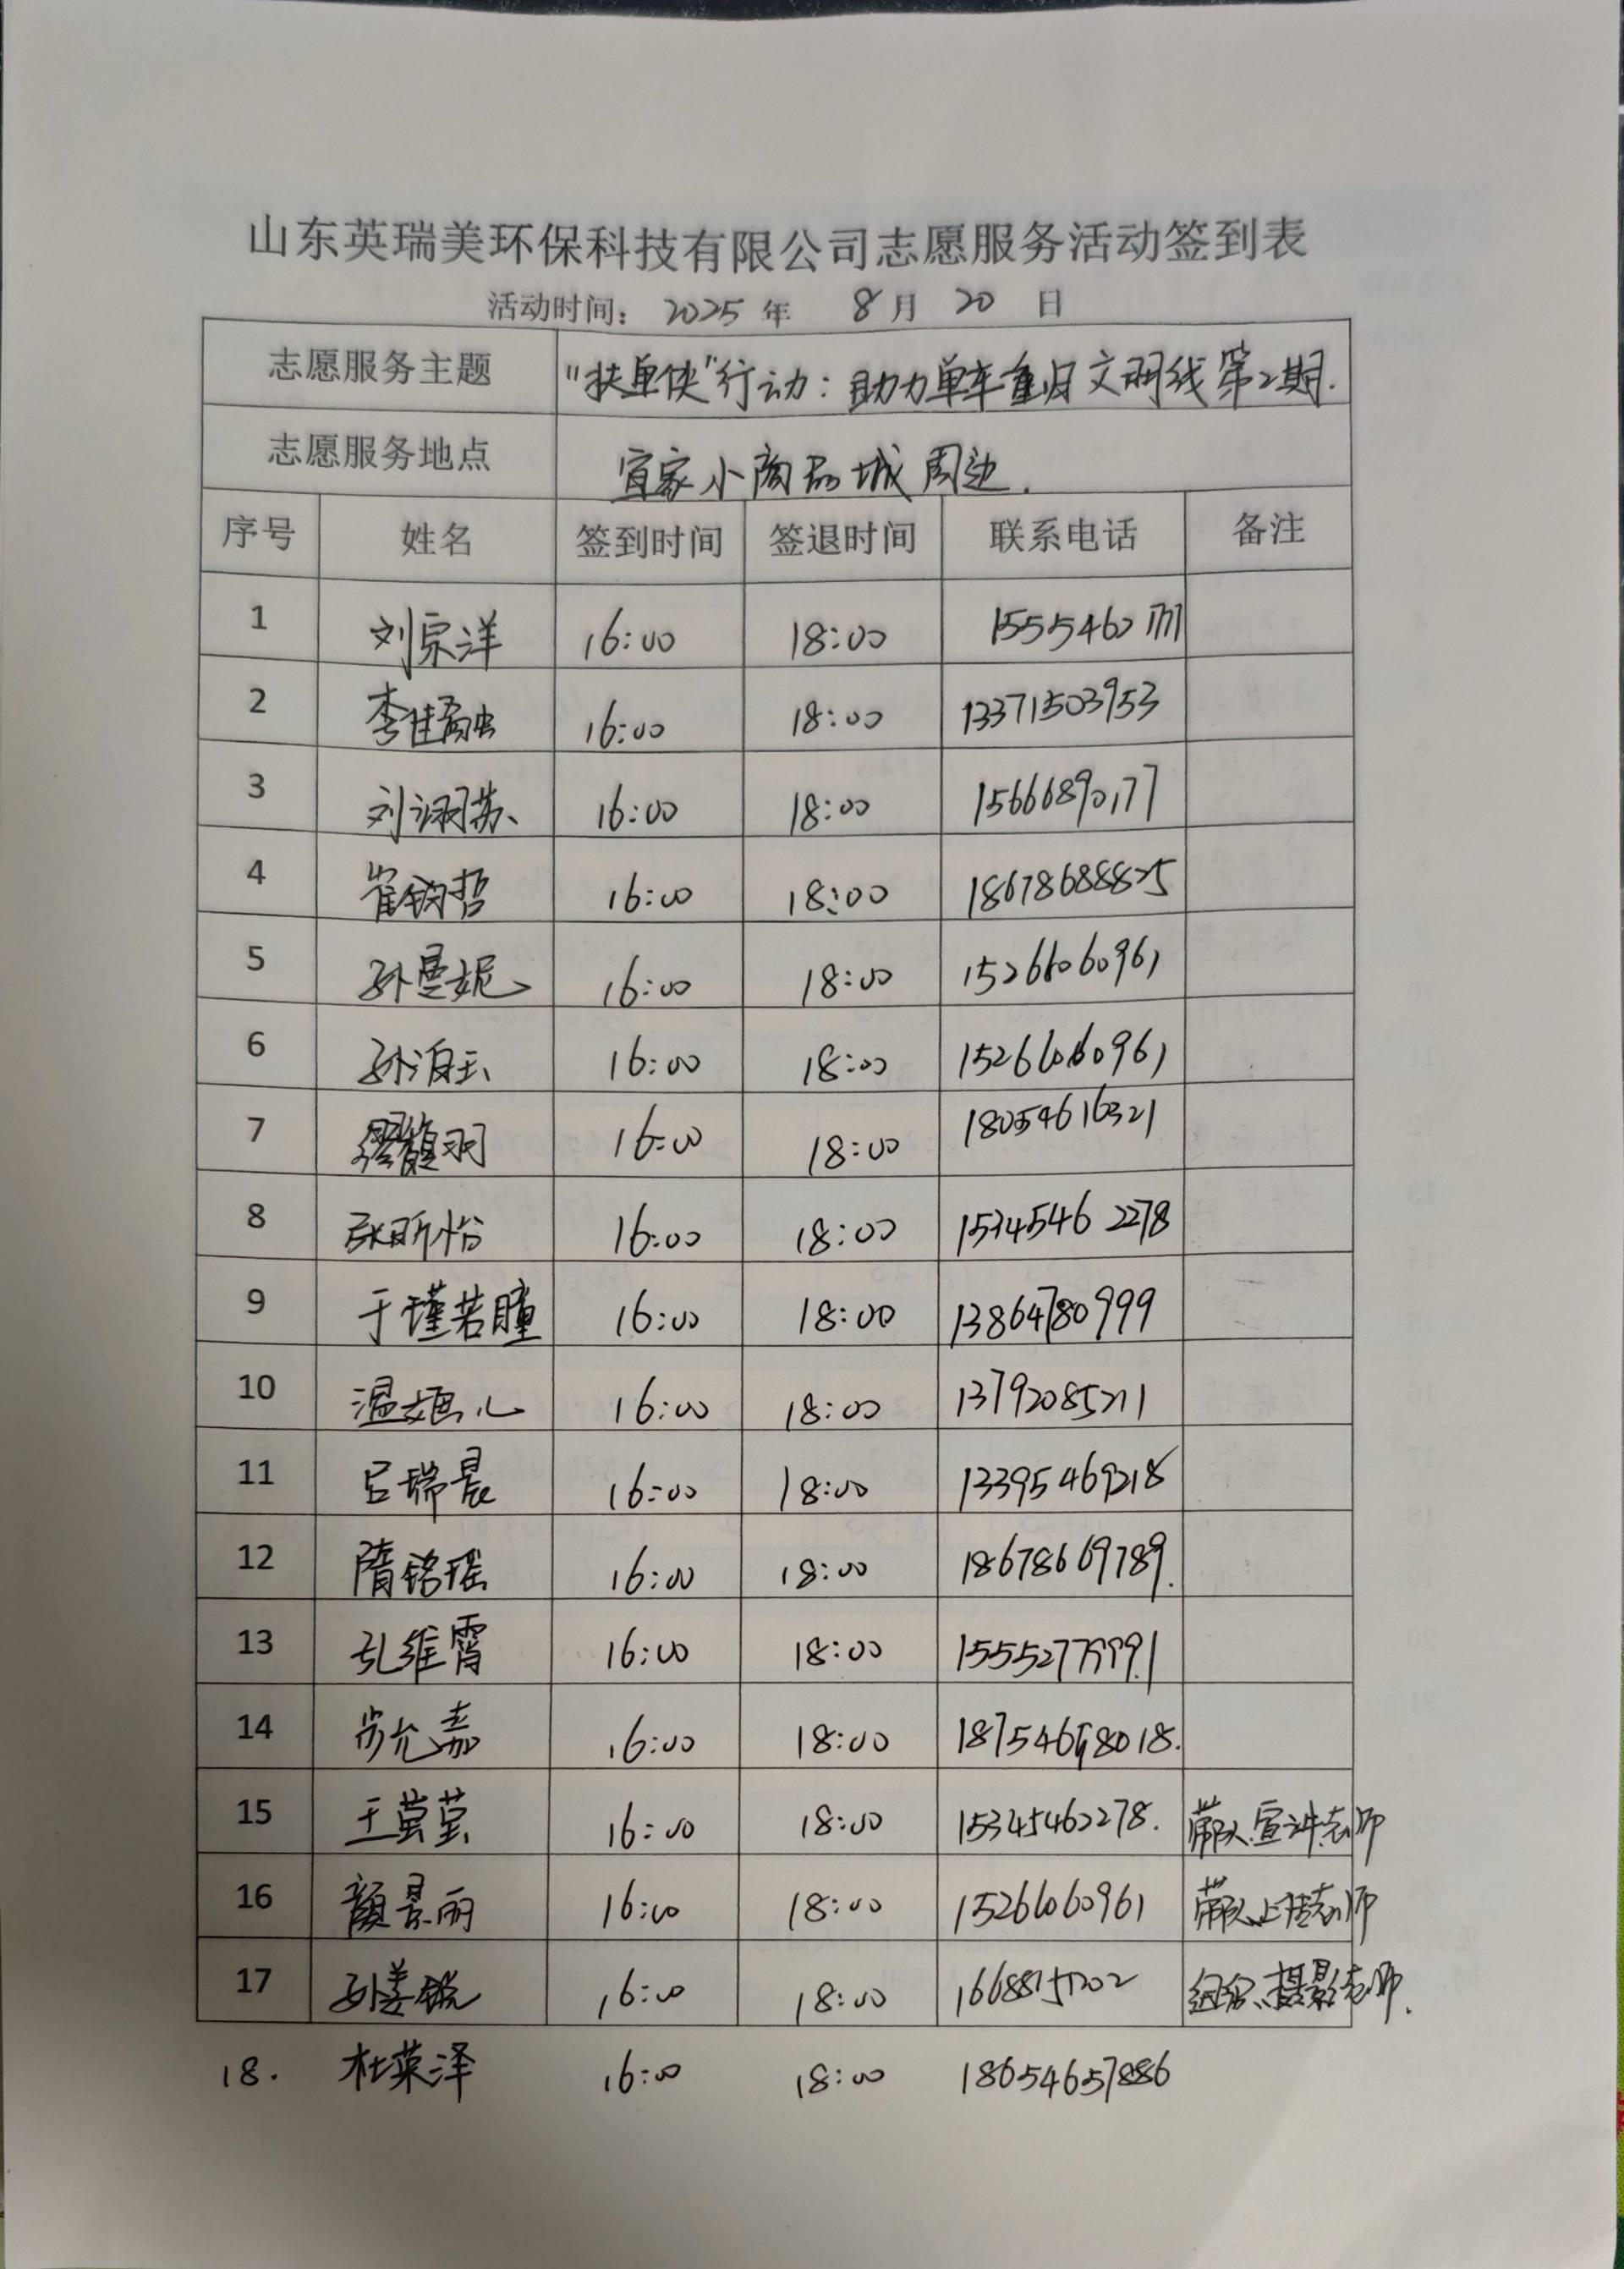 山东英瑞美环保科技有限公司志愿服务活动签到表
活动时间: 2025 年 8 月 20 日
志愿服务主题 "扶单侠"行动: 助力单车重归文明线第2期.
志愿服务地点 宜家小商品城周边.
序号 姓名 签到时间 签退时间 联系电话 备注
1 刘宗洋 16:00 18:00
2 李佳融 16:00 18:00 13371503953
3 刘诩苏 16:00 18:00 15666890177
4 崔钧哲 16:00 18:00 18678688825
5 孙曼妮 16:00 18:00 15266060961
6 孙泊玉 16:00 18:00 15266060961
7 缪馥羽 16:00 18:00 18054616321
8 张昕怡 16:00 18:00 15345462278
9 于瑾若瞳 16:00 18:00 13864780999
10 温婳儿 16:00 18:00 13792085211
11 吕瑞晨 16:00 18:00 13395469218
12 隋铭瑶 16:00 18:00 18678669789.
13 孔维霄 16:00 18:00
14 尚允嘉 16:00 18:00 18754698018.
15 王萤莹 16:00 18:00 15345462278. 带队、宣讲老师
16 颜景丽 16:00 18:00 15266060961 带队、上传老师
17 孙姜锐 16:00 18:00 16688151202 组织、摄影老师.
18. 杜菜泽 16:00 18:00 18654657886